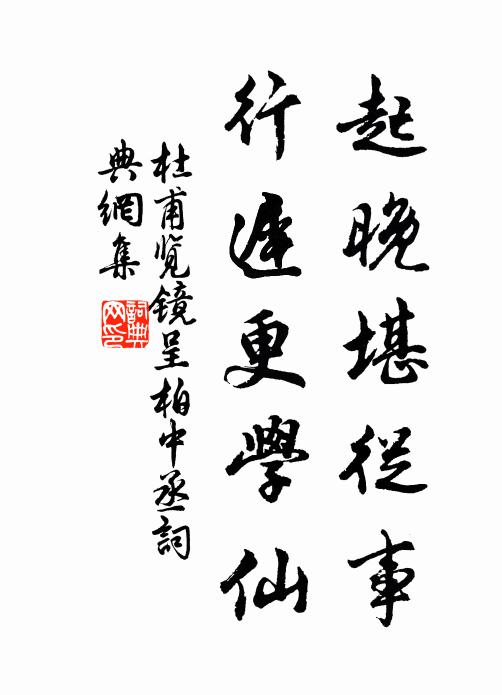 起晚堪從事
行遲更學仙
杜甫覽鏡呈柏中丞詞
典網集
詞典
网印